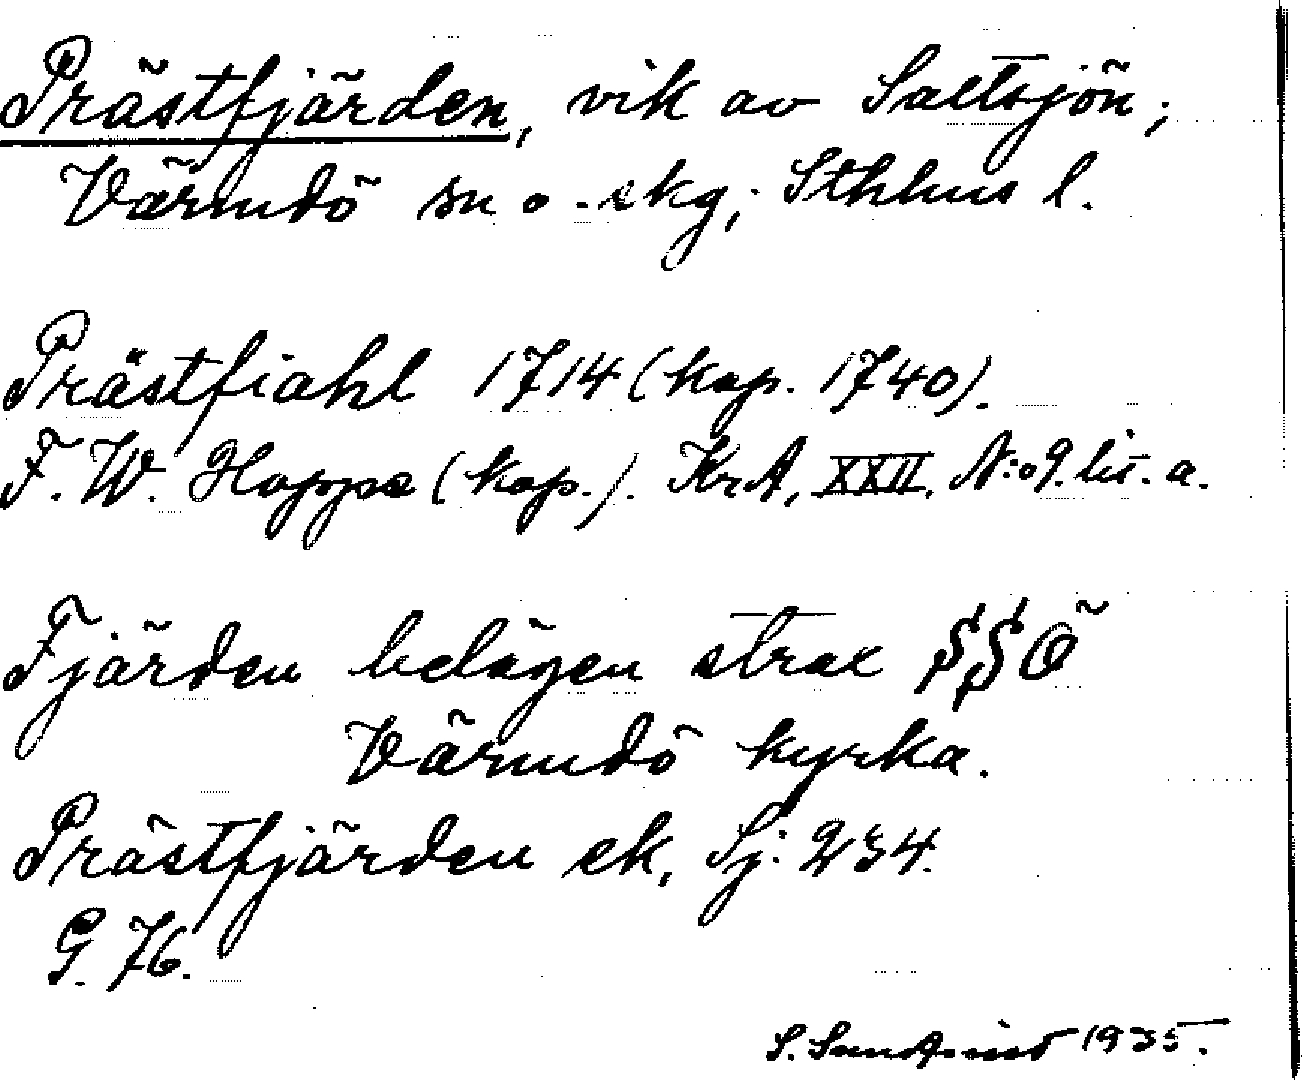 Prästfjärden, vik av Saltsjön;
Värmdö sn o. skg; Sthlms l.
Prästfiahl 1714 (kop. 1740).
F. W. Hoppe (kop.). KrA, XXII, N:o 9. lit. a.
Fjärden belägen strax SSÖ
Värmdö kyrka.
Prästfjärden ek, Sj. 234.
G. 76.
S. Sundqvist 1935.